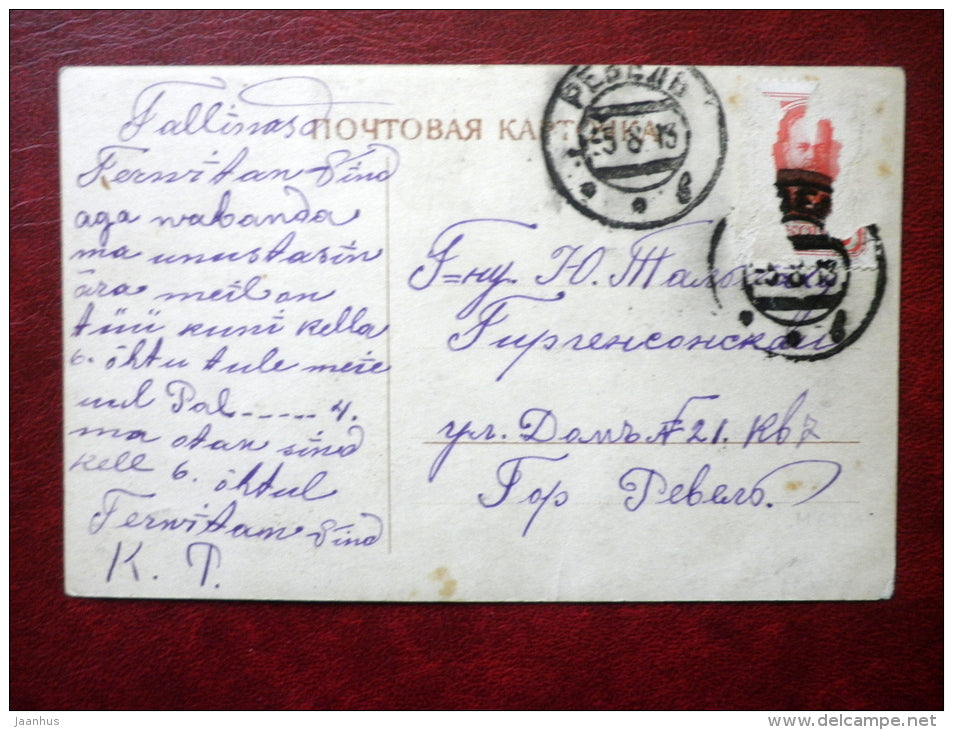 Tallinas
ПОЧТОВАЯ КАРТОЧКА
Terwitan Sind
aga wabanda
ma unustasin
ära meil on
töö kuni kella
6. õhtu tule meie
uul Pal ----- 4.
ma otan sind
kell 6. õhtul
Terwitan Sind
K. T.
РЕВЕЛЬ
-5 8 13
в
-5 8 13
в
Г=ну. Ю.
Гиргенсонской
ул. Домъ № 21. кв 7
Гор Ревель.
Jaanhus
www.delcampe.net